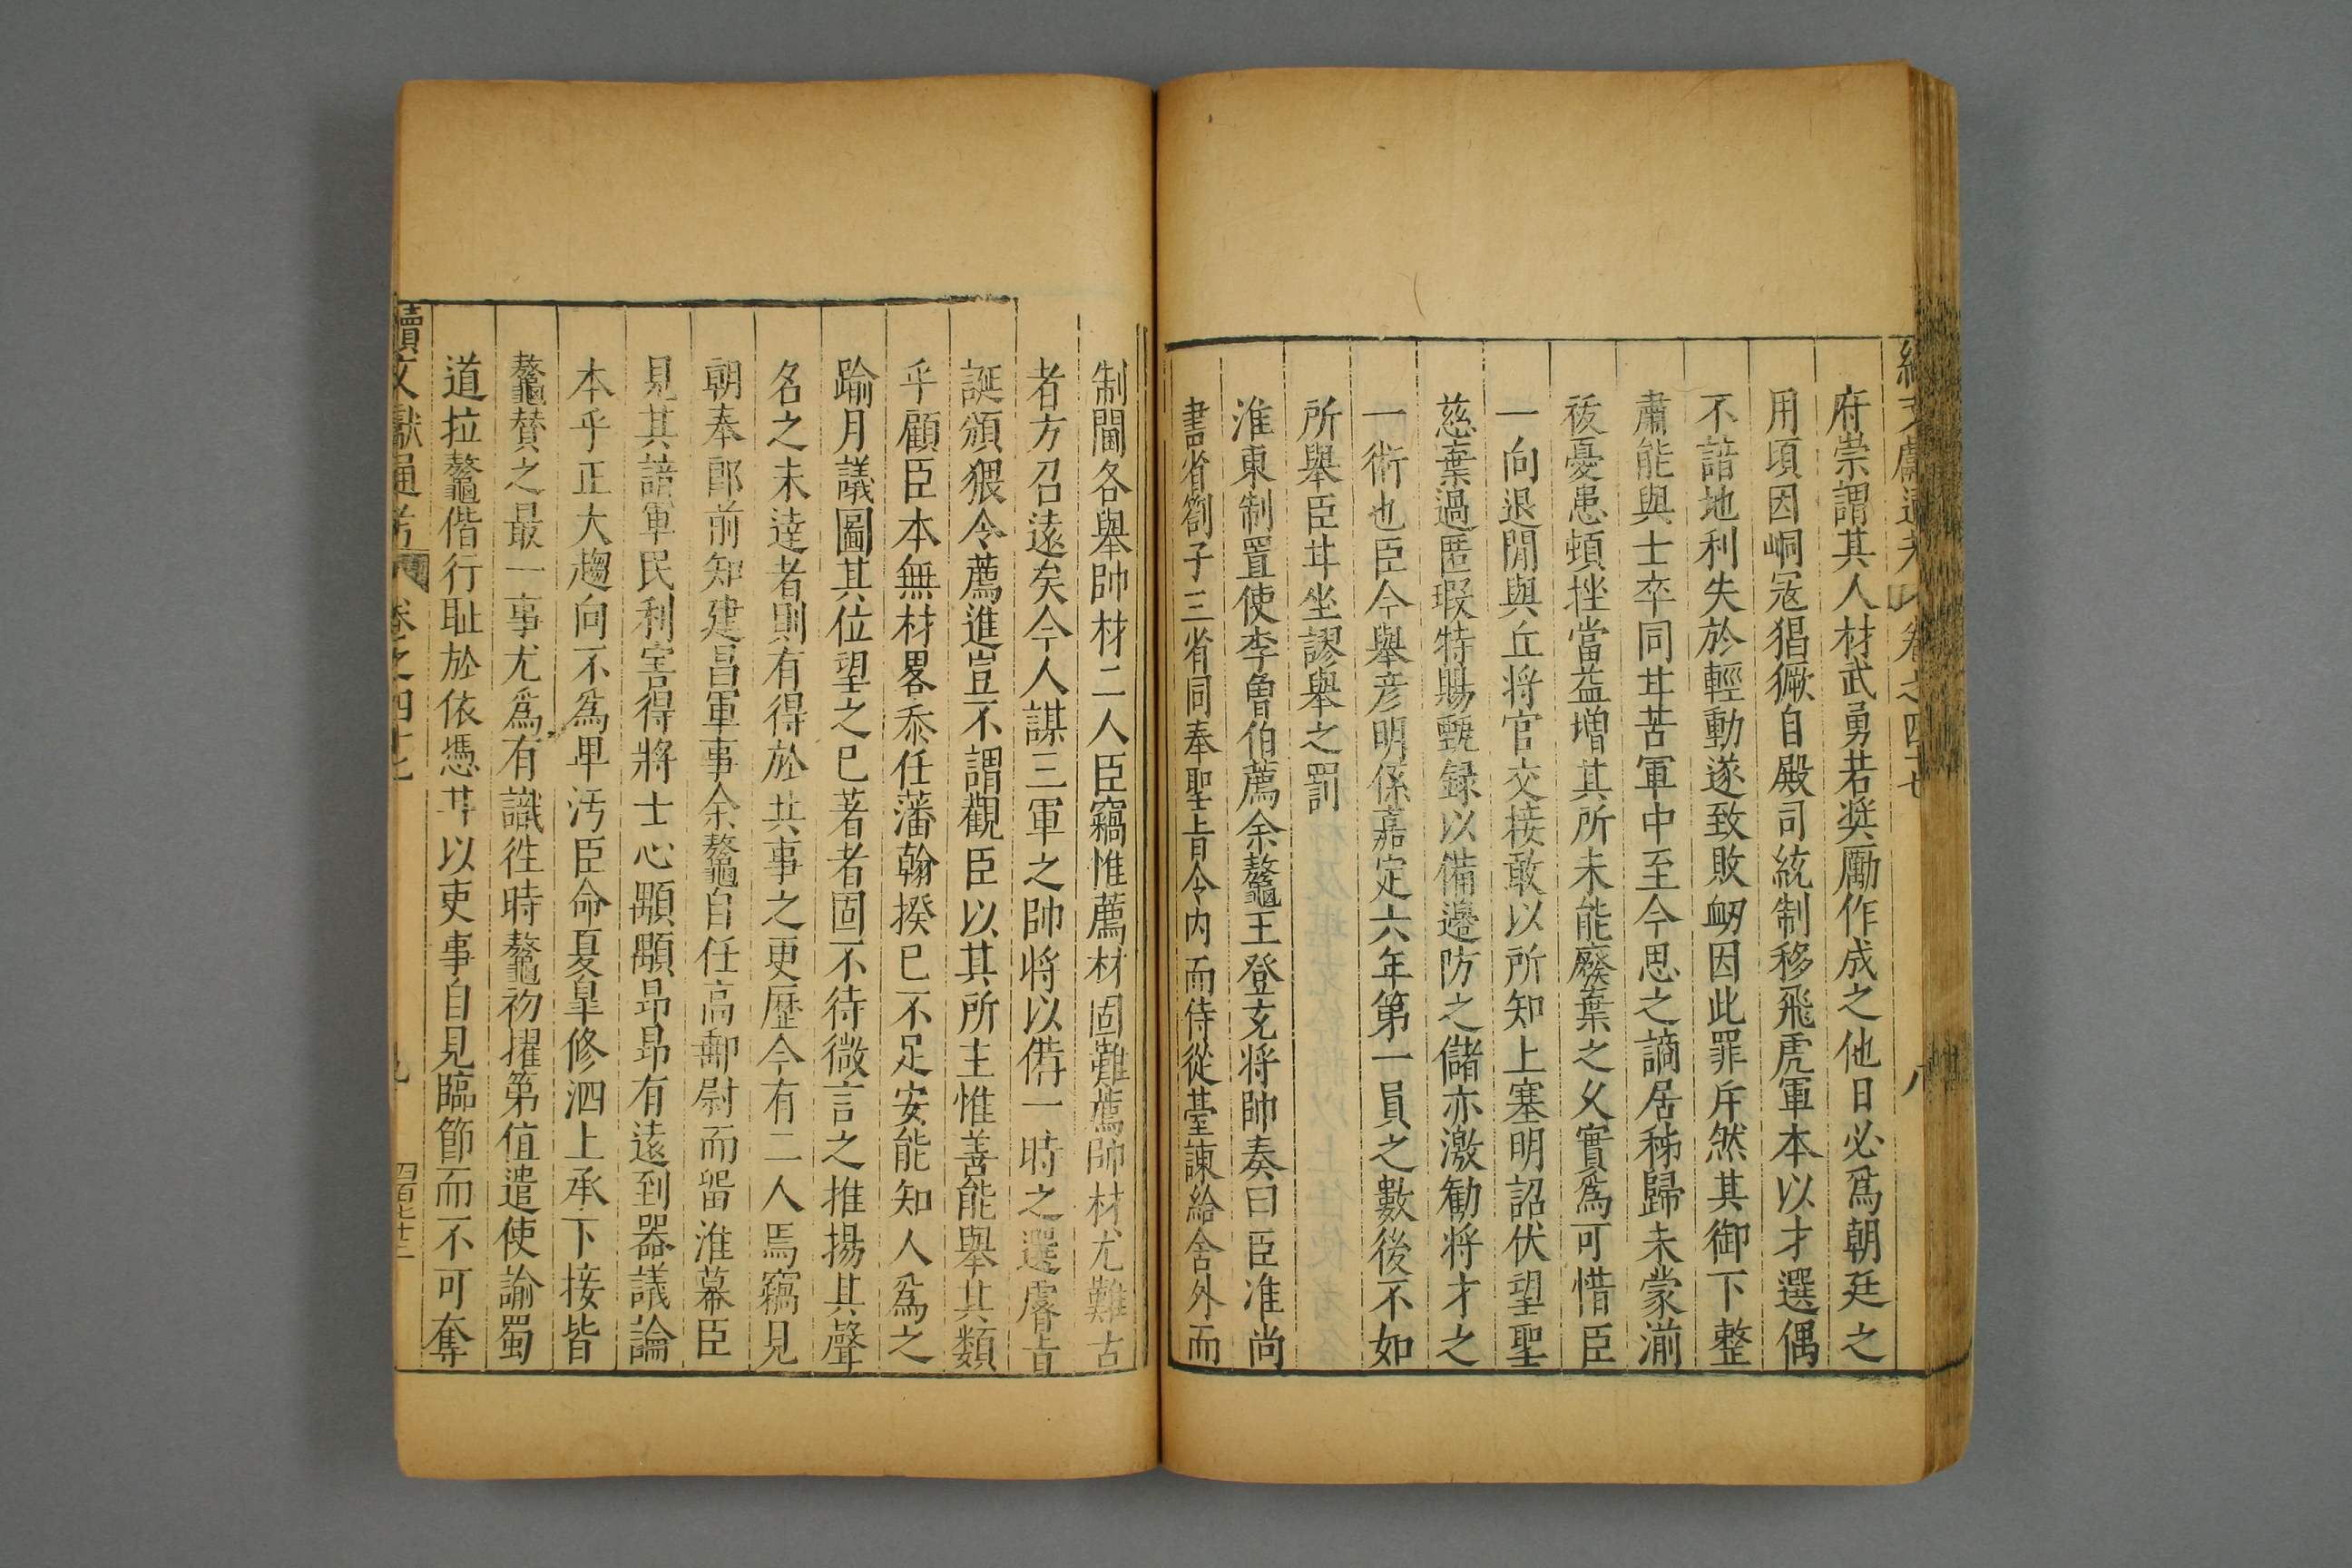 續文獻通考 卷之四十七 八
府崇謂其人材武勇若奬勵作成之他日必爲朝廷之
用頃因峒冦猖獗自殿司統制移飛虎軍本以才選偶
不諳地利失於輕動遂致敗衂因此罪斥然其御下整
肅能與士卒同甘苦軍中至今思之謫居秭歸未蒙湔
祓憂患頓挫當益增其所未能廢棄之乆實爲可惜臣
一向退閒與丘将官交接敢以所知上塞明詔伏望聖
慈棄過匿瑕特賜甄録以備邉防之儲亦激勧将才之
一術也臣今舉彦明係嘉定六年第一員之數後不如
所舉臣甘坐謬舉之罰
淮東制置使李魯伯薦余鼇王登充将帥奏曰臣准尚
書省劄子三省同奉聖旨令内而侍從臺諫給舍外而
制閫各舉帥材二人臣竊惟薦材固難薦帥材尤難古
者方召逺矣今人謀三軍之帥将以備一時之選睿旨
誕頒猥令薦進豈不謂觀臣以其所主惟善能舉其類
乎顧臣本無材畧忝任藩翰揆已不足安能知人爲之
踰月議圖其位望之已著者固不待微言之推揚其聲
名之未達者則有得於共事之更歷今有二人焉竊見
朝奉郎前知建昌軍事余鼇自任高郵尉而留淮幕臣
見其諳軍民利害得將士心顒顒昂昂有逺到器議論
本乎正大趨向不爲甲汚臣命夏皐修泗上承下接皆
鼇賛之最一事尤爲有識徃時鼇初擢第值遣使諭蜀
道拉鼇偕行耻於依憑甘以吏事自見臨節而不可奪
續文獻通考 卷之四十七 九